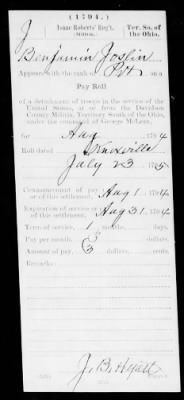 (1794.)
J Isaac Roberts' Reg't, Ter. So. of
the Ohio.
Benjamin Joslin
Appears with the rank of Pvt on a
Pay Roll
of a detachment of troops in the service of the
United States, as or from the Davidson
County Militia, Territory South of the Ohio,
under the command of
for Aug 1794
Roll dated Knoxville
July 23 1795
Commencement of pay, of this settlement, Aug 1 1794
Expiration of service, of this settlement, Aug 31 1794
Term of service, 1 months, days.
Pay per month, 3 dollars, cents.
Amount of pay, 3 dollars, cents.
Remarks: